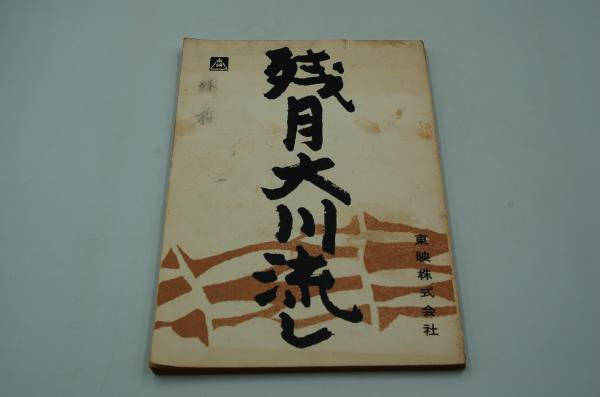 残月大川流し
東映株式会社